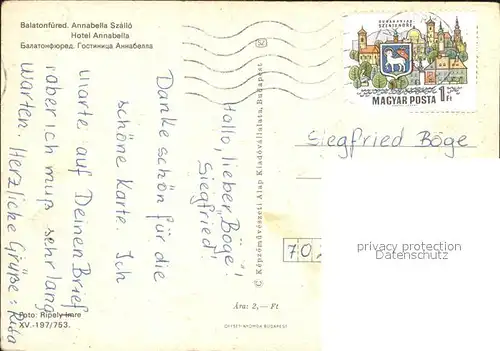 Balatonfüred. Annabella Szálló
Hotel Annabella
Балатонфюред. Гостиница Аннабелла
DUNAKANYAR
SZENTENDRE
MAGYAR POSTA 1 Ft
Siegfried Böge
Hallo, lieber „Böge"!
Siegfried!
Danke schön für die
schöne Karte. Ich
warte auf Deinen Brief
aber ich muß sehr lang
warten. Herzliche Grüße: Rita
© Képzőművészeti Alap Kiadóvállalata, Budapest
70
privacy protection
Datenschutz
Ára: 2,— Ft
Foto: Ripely Imre
XV.-197/753.
OFFSET-NYOMDA BUDAPEST